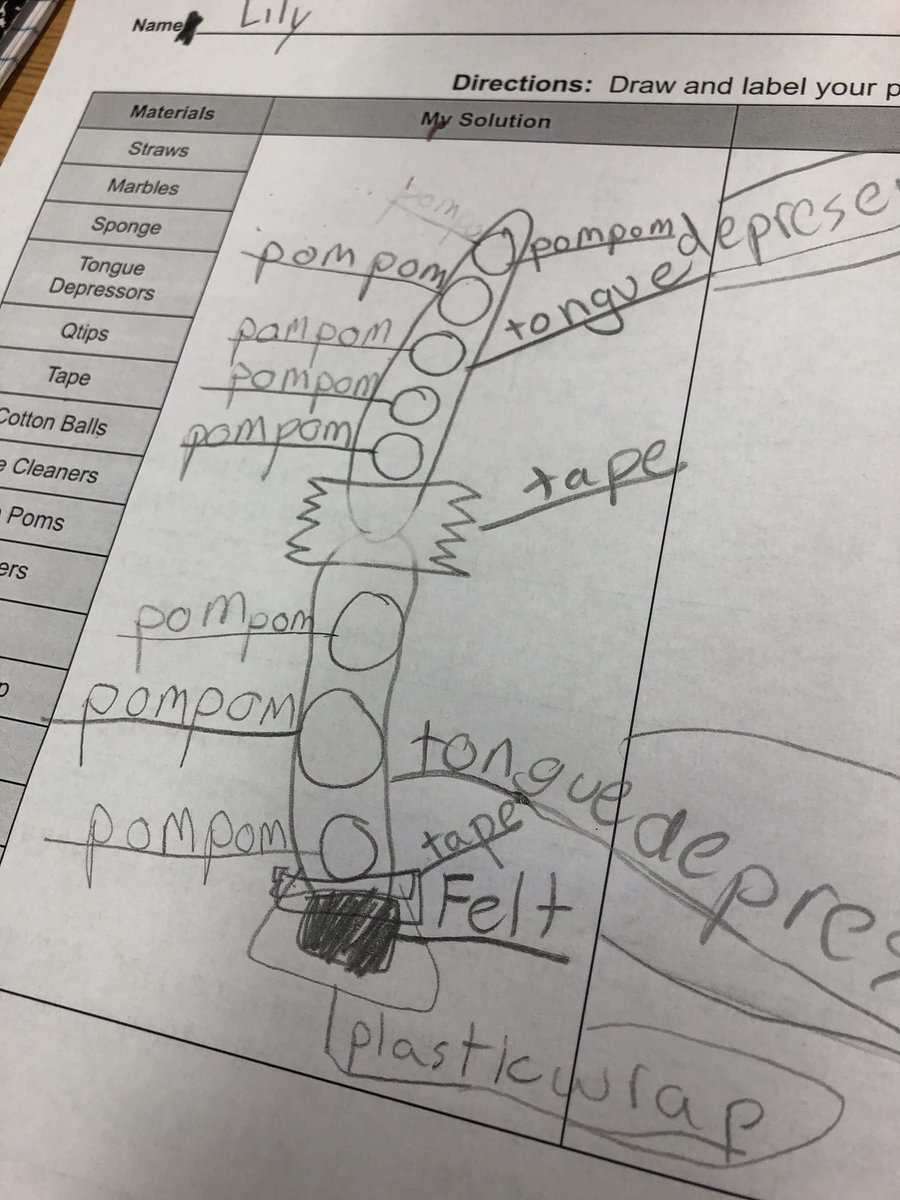 Name Lily
Directions: Draw and label your p
Materials
My Solution
Straws
Marbles
Sponge
Tongue
Depressors
Qtips
Tape
Cotton Balls
e Cleaners
Poms
ers
p
pompom
pompom
pompom
tongue deprese
pampom
pompom
pompom
tape
pompom
pompom
tongue depres
pompom
tape
Felt
plastic wrap